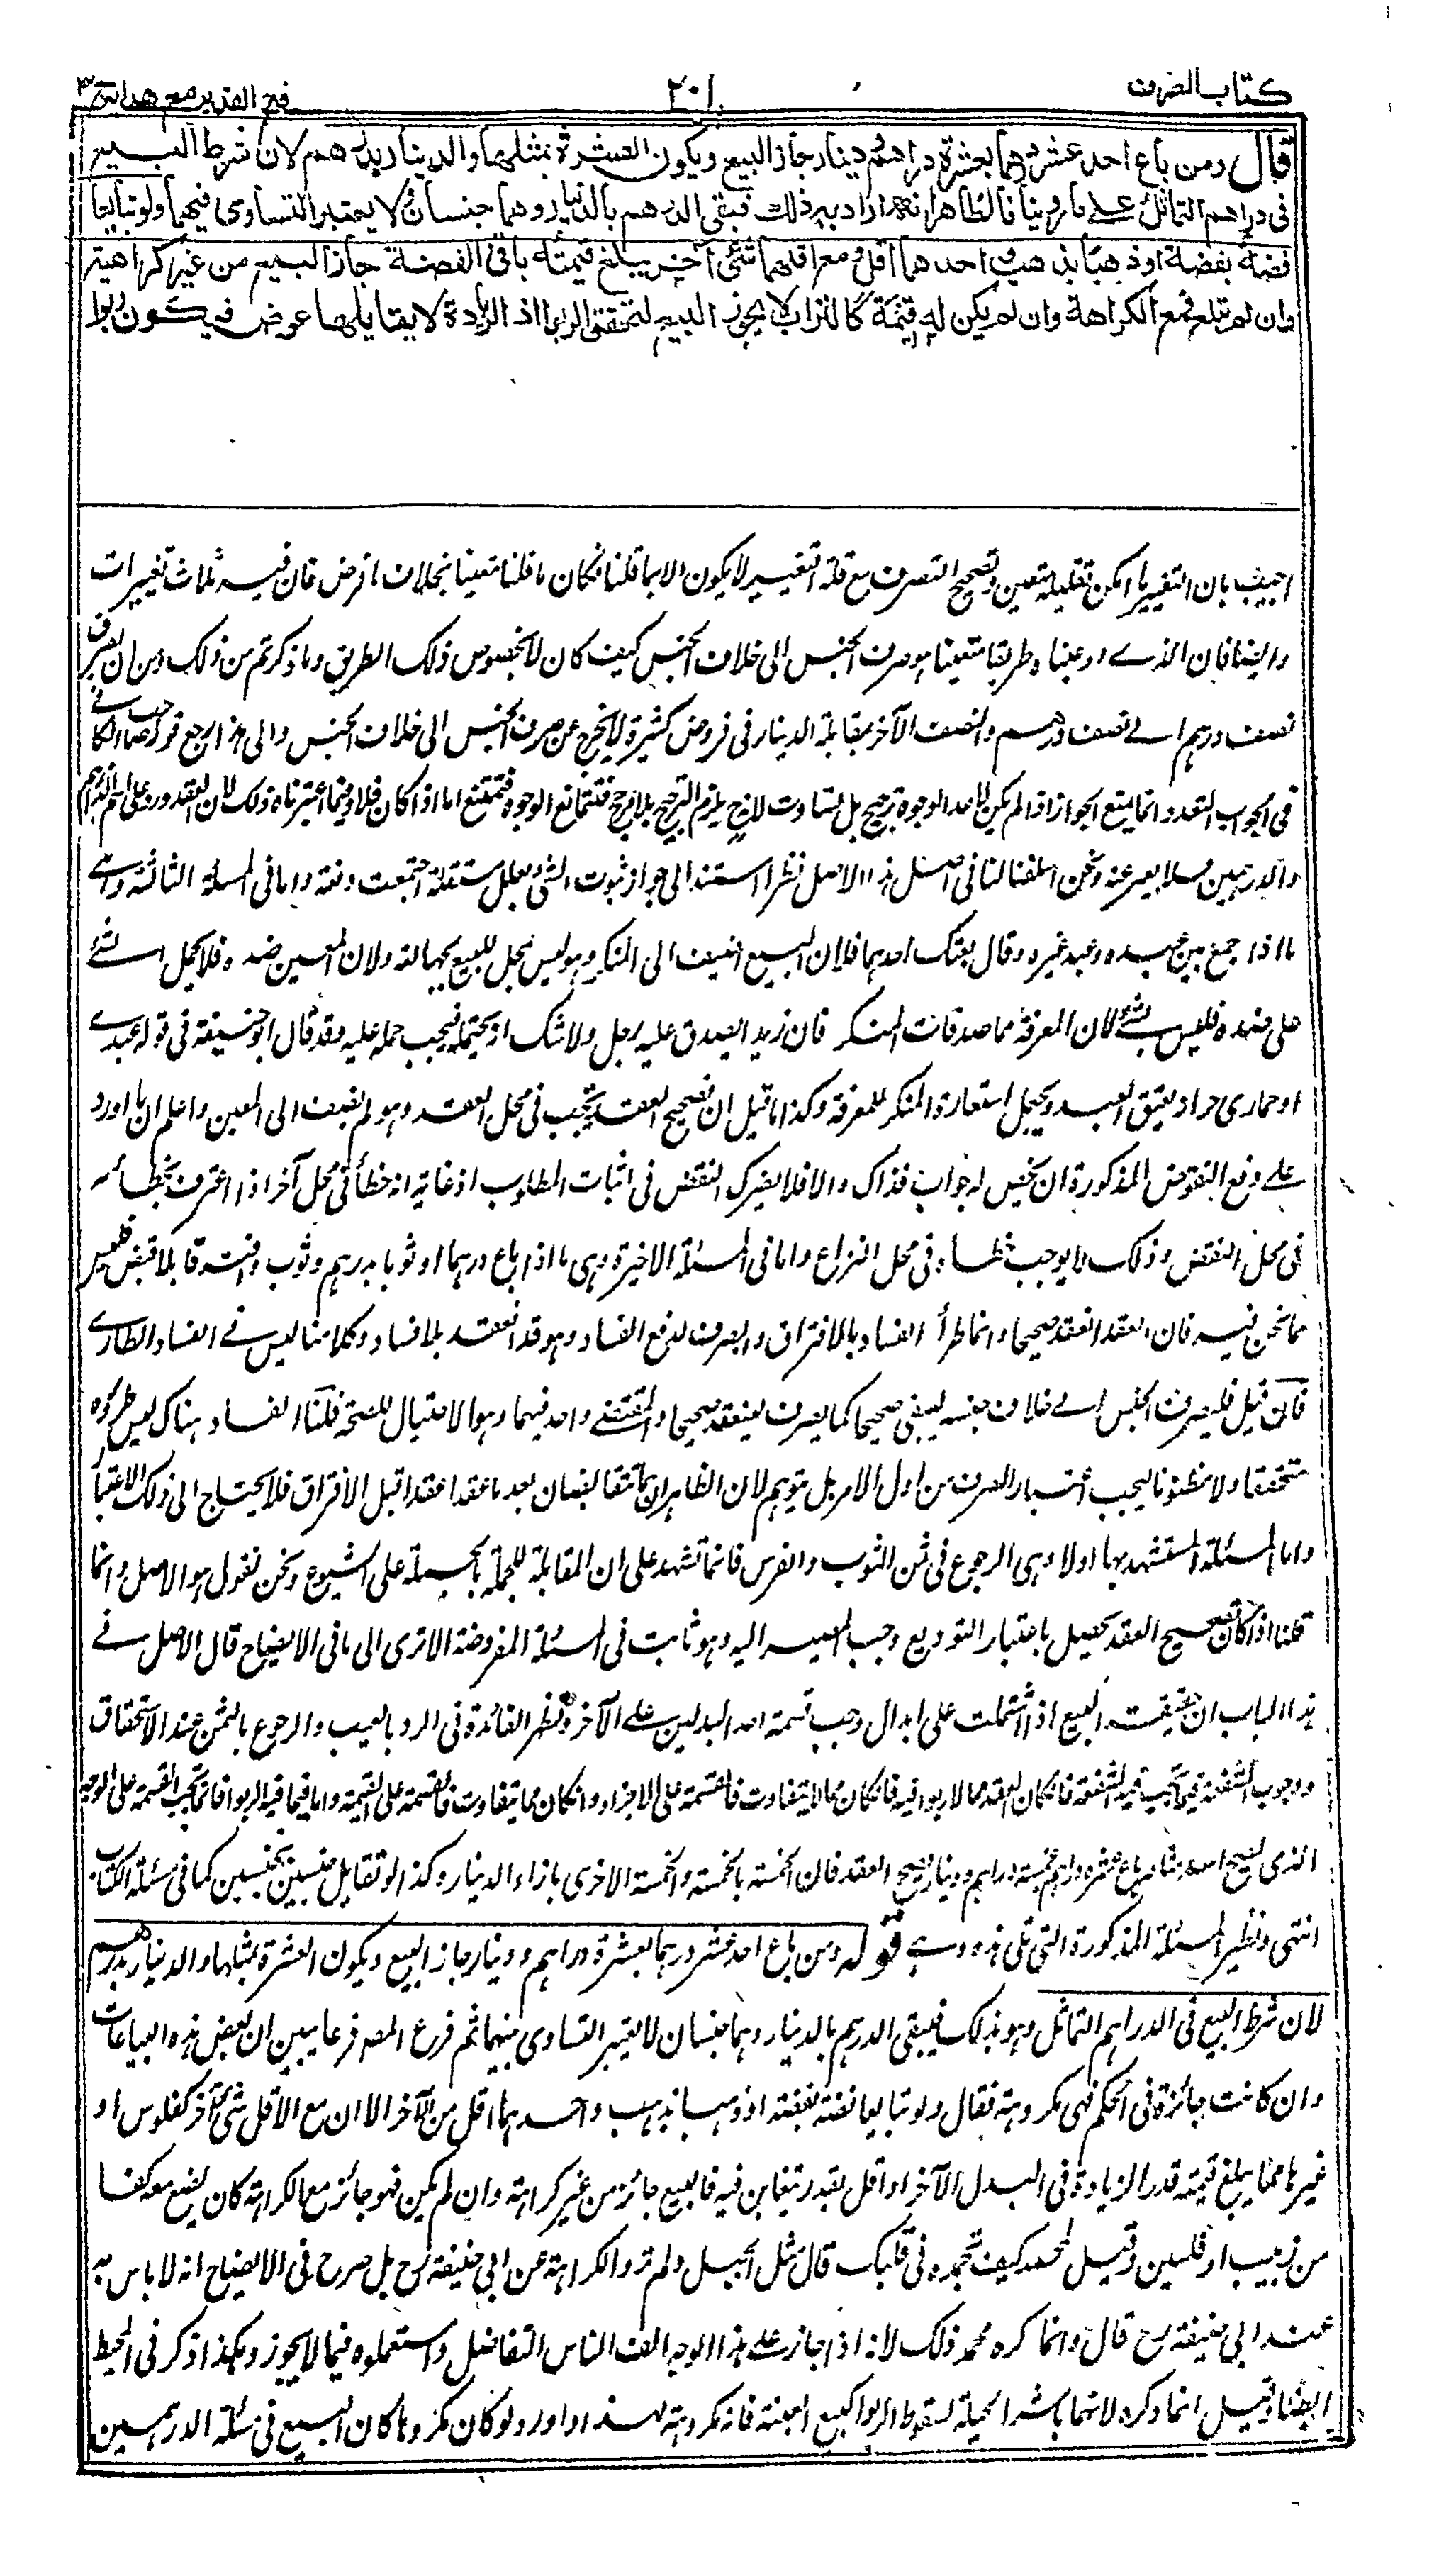 كتاب الصرف
٢٠١
فتح القدير مع هداية ج٣
قال ومن باع احد عشر درهما بعشرة دراهم ودينار جاز البيع ويكون العشرة بمثلها والدينار بدرهم لان شرط البيع
فى دراهم التماثل على ما روينا فالظاهر انه اراد به ذلك فبقى الدرهم بالدينار وهما جنسان لا يعتبر التساوى فيهما ولو تبايعا
فضة بفضة او ذهبا بذهب واحدهما اقل ومع اقلهما شئ آخر يبلغ قيمته باقى الفضة جاز البيع من غير كراهية
وان لم تبلغ فمع الكراهة وان لم يكن له قيمة كالتراب لا يجوز البيع لتحقق الربوا اذ الزيادة لا يقابلها عوض فيكون ربوا
اجيب بان التغيير ما امكن تقليله يتعين وتصحيح التصرف مع قلة التغيير لا يكون الا بما قلنا فكان ما قلنا متعينا بخلاف ما فرض فان فيه ثلاث تغييرات
وايضا فان الذى ادعيناه طريقا متعينا هو صرف الجنس الى خلاف الجنس كيف كان لا بخصوص ذلك الطريق وما ذكرتم من ذلك ومن ان يصرف
نصف درهم الى نصف درهم والنصف الآخر بمقابلة الدينار فى فروض كثيرة لا يخرج عن صرف الجنس الى خلاف الجنس والى هذا يرجع قول صاحب الكافى
فى الجواب العقد وانما يمتنع الجواز اذا لم يكن لاحد الوجوه ترجيح بل تساوت لانه ح يلزم الترجيح بلا مرجح فتتمانع الوجوه فتمتنع اما اذا كان فلا وفيما اعتبرناه ذلك لان العقد ورد على اسم الدراهم
والدرهمين فلا يعبر عنه ونحن اسلفنا لنا فى اصل هذا الاصل نظرا استند الى جواز ثبوت الشئ بعلل مستقلة اجتمعت دفعة واما فى المسئلة الثالثة وهى
ما اذا جمع بين عبده وعبد غيره وقال بعتك احدهما فلان البيع اضيف الى المنكر وهو ليس بمحل للبيع لجهالته ولان المعين ضده فلا يحمل الشئ
على ضده فليس بشئ لان المعرفة مما صدقات المنكر فان زيدا يصدق عليه رجل ولا شك انه يحتمله فيجب حمله عليه وقد قال ابو حنيفة فى قوله عبدى
او حمارى حر انه يعتق العبد ويجعل استعارة المنكر للمعرفة وكذا ما قيل ان تصحيح العقد يجب فى محل العقد وهو لم يضف الى المعين واعلم ان ما اورد
على دفع النقوض المذكورة ان يخص له جواب فذاك والا فلا يضرك النقض فى اثبات المطلوب اذ غايته انه خطأ فى محل آخر اذا اعترف بخطائه
فى محل النقض وذلك لا يوجب خطاءه فى محل النزاع واما فى المسئلة الاخيرة وهى ما اذا باع درهما وثوبا بدرهم وثوب وافترقا بلا قبض فليس
مما نحن فيه فان العقد انعقد صحيحا وانما طرأ الفساد بالافتراق والصرف لدفع الفساد وهو قد انعقد بلا فساد وكلامنا ليس فى الفساد الطارى
فان قيل فليصرف الجنس الى خلاف جنسه ليبقى صحيحا كما يصرف لينعقد صحيحا والمقتضى واحد فيهما وهو الاحتيال للصحة قلنا الفساد هناك ليس طروه
متحققا ولا مظنونا ليجب اعتبار الصرف من اول الامر بل يتوهم لان الظاهر انهما يتقابضان بعد ما عقدا عقدا قبل الافتراق فلا يحتاج الى ذلك الاعتبار
واما المسئلة المستشهد بها اولا وهى الرجوع فى ثمن الثوب والفرس فانما تشهد على ان المقابلة للجملة بالجملة على الشيوع ونحن نقول هو الاصل وانما
قلنا اذا كان تصحيح العقد يحصل باعتبار التوزيع وجب المصير اليه وهو ثابت فى المسئلة المفروضة الا ترى الى ما فى الايضاح قال الاصل فى
هذا الباب ان حقيقة البيع اذا اشتملت على ابدال وجب قسمة احد البدلين على الآخر وتظهر الفائدة فى الرد بالعيب والرجوع بالثمن عند الاستحقاق
ووجوب الشفعة فيما تجب فيه الشفعة فان كان العقد مما لا ربوا فيه فان كان مما لا يتفاوت فالقسمة على الاجزاء وان كان مما يتفاوت فالقسمة على القيمة واما فيما فيه الربوا فانما تجب القسمة على الوجه
الذى يصح به العقد مثاله باع عشرة دراهم بخمسة دراهم ودينار يصح العقد فان الخمسة بالخمسة والخمسة الاخرى بازاء الدينار وكذا لو تقابل جنسين بجنسين كما فى مسئلة الكتاب
انتهى ونظير المسئلة المذكورة التى تلى هذه وهى قوله ومن باع احد عشر درهما بعشرة دراهم ودينار جاز البيع ويكون العشرة بمثلها والدينار بدرهم
لان شرط البيع فى الدراهم التماثل وهو بذلك فيبقى الدرهم بالدينار وهما جنسان لا يعتبر التساوى فيهما ثم فرع المصـ فرعا يبين ان بعض هذه البياعات
وان كانت جائزة فى الحكم فهى مكروهة فقال ولو تبايعا فضة بفضة او ذهبا بذهب واحدهما اقل من الآخر الا ان مع الاقل شئ آخر كفلوس او
غيرها مما يبلغ قيمته قدر الزيادة فى البدل الآخر او اقل بقدر يتغابن فيه فالبيع جائز من غير كراهة وان لم يكن فهو جائز مع الكراهة كان يضع معه كفا
من زبيب او فلسين وقيل لمحمد كيف تجده فى قلبك قال مثل الجبل ولم ترو الكراهة عن ابى حنيفة رح بل صرح فى الايضاح انه لا باس به
عند ابى حنيفة رح قال وانما كره محمد ذلك لانه اذا جاز على هذا الوجه الف الناس التفاضل واستعملوه فيما لا يجوز وهكذا ذكر فى المحيط
ايضا وقيل انما كره لانهما باشرا الحيلة لسقوط الربوا كبيع العينة فانه مكروه بهذا واورد لو كان مكروها كان البيع فى مسئلة الدرهمين